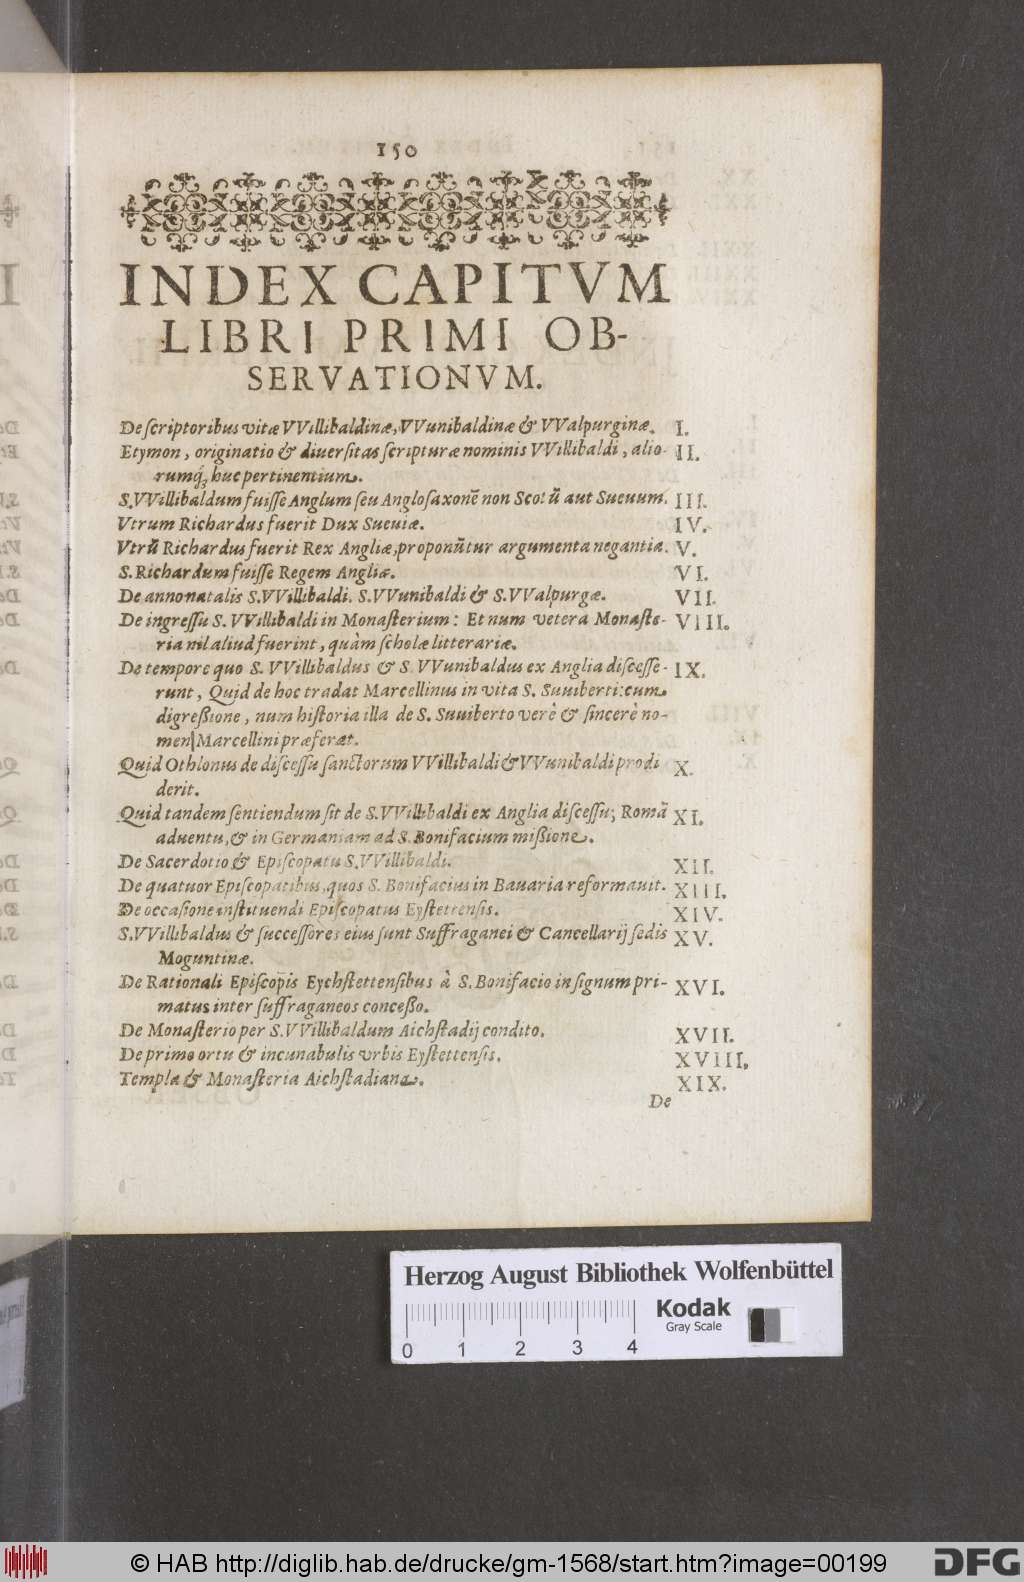 150
INDEX CAPITVM
LIBRI PRIMI OB-
SERVATIONVM.
De scriptoribus vitæ VVillibaldinæ, VVunibaldinæ & VValpurginæ. I.
Etymon, originatio & diuersitas scripturæ nominis VVillibaldi, alio- II.
rumq́; huc pertinentium.
S. VVillibaldum fuisse Anglum seu Anglosaxonē non Scotū aut Sueuum. III.
Vtrum Richardus fuerit Dux Sueuiæ. IV.
Vtrū Richardus fuerit Rex Angliæ, proponūtur argumenta negantia. V.
S. Richardum fuisse Regem Angliæ. VI.
De anno natalis S. VVillibaldi. S. VVunibaldi & S. VValpurgæ. VII.
De ingressu S. VVillibaldi in Monasterium: Et num vetera Monaste- VIII.
ria nil aliud fuerint, quàm scholæ litterariæ.
De tempore quo S. VVillibaldus & S. VVunibaldus ex Anglia discesse- IX.
runt, Quid de hoc tradat Marcellinus in vita S. Suuiberti: cum
digreßione, num historia illa de S. Suuiberto verè & sincerè no-
men Marcellini præferat.
Quid Othlonus de discessu sanctorum VVillibaldi & VVunibaldi prodi X.
derit.
Quid tandem sentiendum sit de S. VVillibaldi ex Anglia discessu; Romā XI.
aduentu, & in Germaniam ad S. Bonifacium mißione.
De Sacerdotio & Episcopatu S. VVillibaldi. XII.
De quatuor Episcopatibus, quos S. Bonifacius in Bauaria reformauit. XIII.
De occasione instituendi Episcopatus Eystettensis. XIV.
S. VVillibaldus & successores eius sunt Suffraganei & Cancellarij sedis XV.
Moguntinæ.
De Rationali Episcopis Eychstettensibus à S. Bonifacio in signum pri- XVI.
matus inter suffraganeos conceßo.
De Monasterio per S. VVillibaldum Aichstadij condito. XVII.
De primo ortu & incunabulis vrbis Eystettensis. XVIII.
Templa & Monasteria Aichstadiana. XIX.
De
Herzog August Bibliothek Wolfenbüttel
Kodak
Gray Scale
0 1 2 3 4
© HAB http://diglib.hab.de/drucke/gm-1568/start.htm?image=00199
DFG